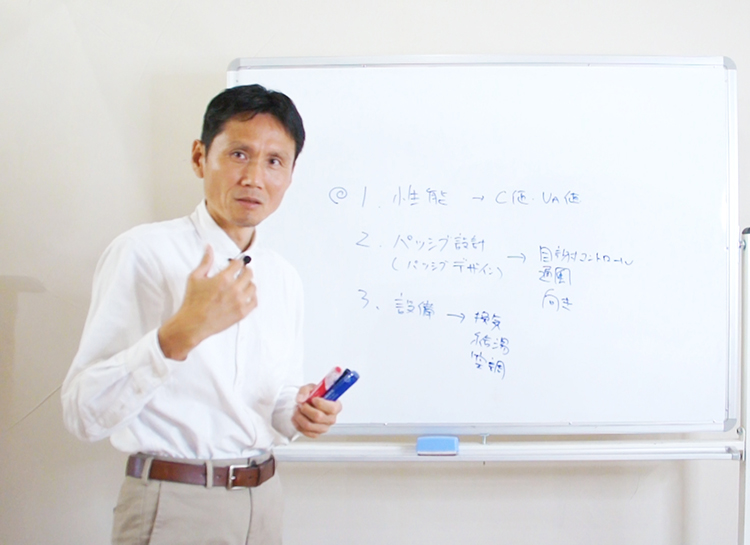 1. 性能 → C値・UA値
2. パッシブ設計 → 日射コントロール
(パッシブデザイン) 通風
向き
3. 設備 → 換気
給湯
空調